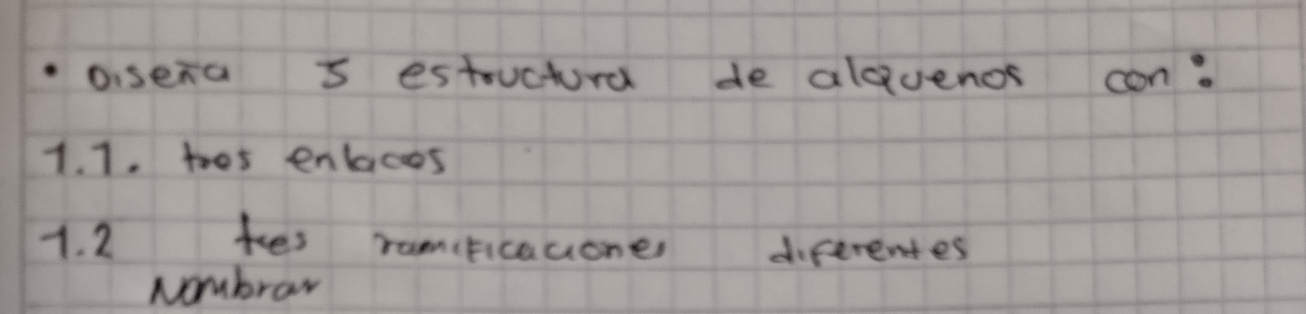 • Diseña 5 estructura de alquenos con:
1.1. tres enlaces
1.2 tres ramificaciones diferentes
Nombrar